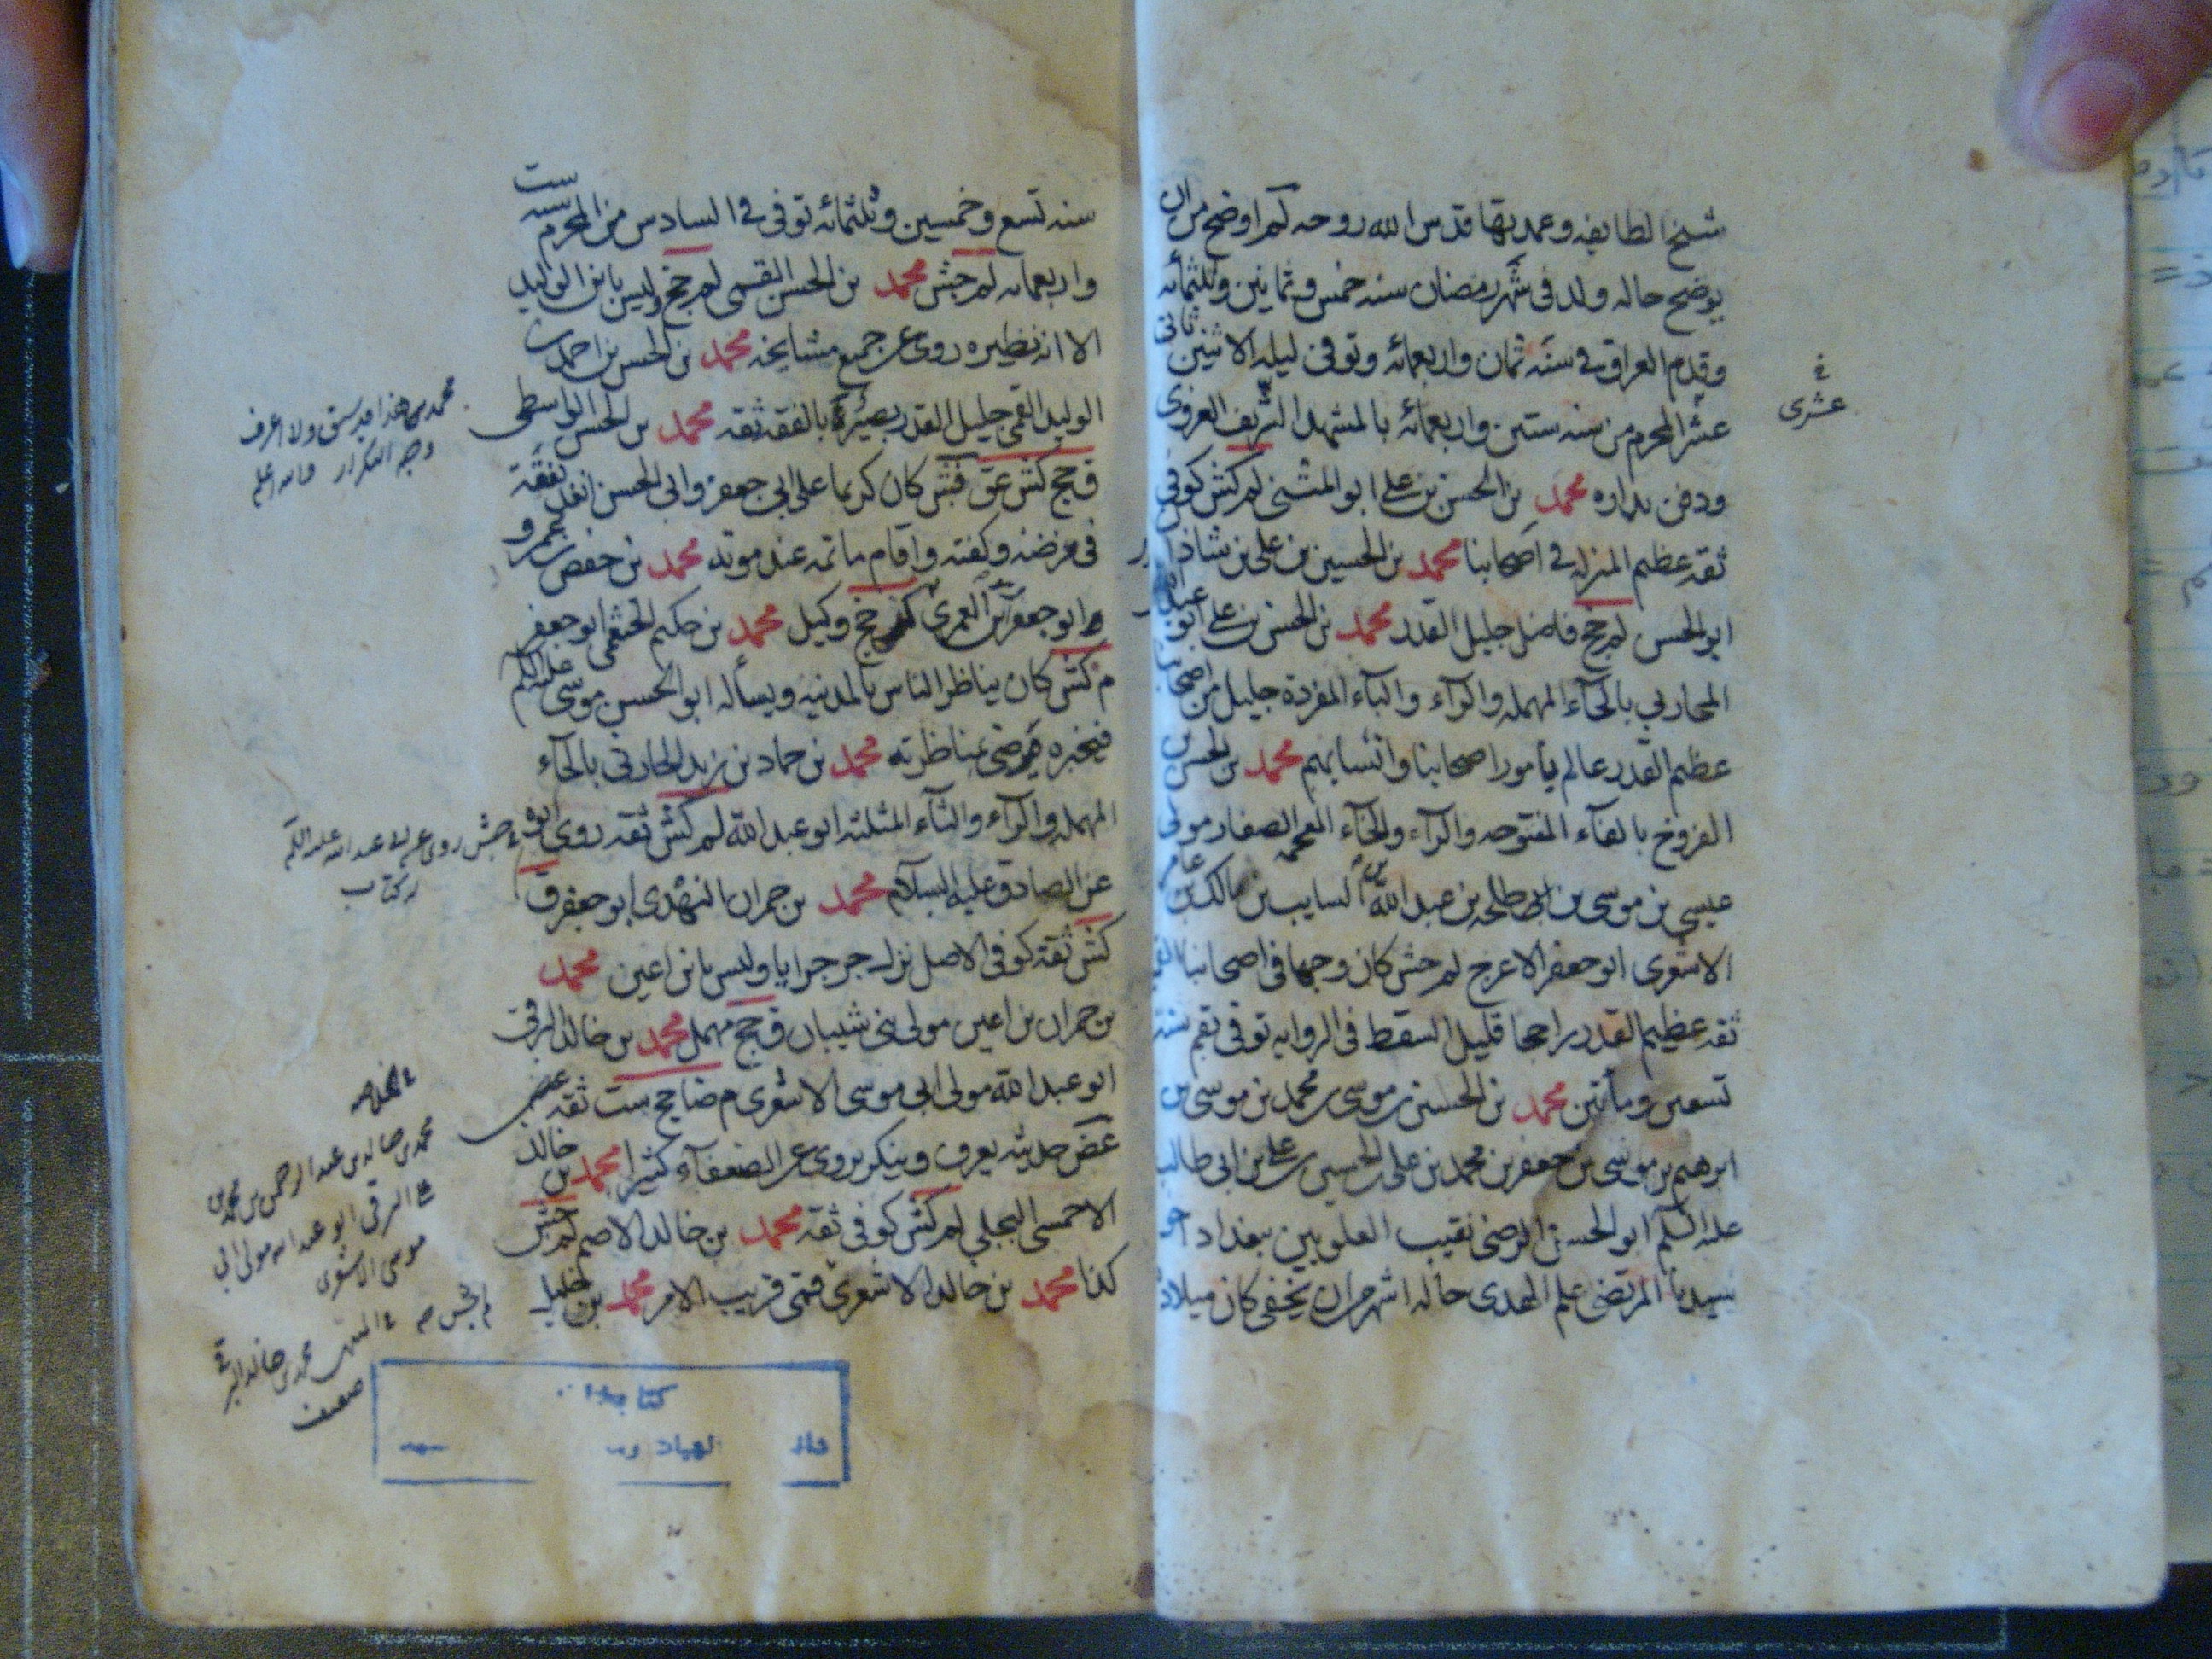 شيخ الطايفه وعمدتها قدس الله روحه لم اوضح من ان
يوضح حاله ولد فى شهر رمضان سنه خمس وثمانين وثلثمائه
وقدم العراق فى سنه ثمان واربعمائه وتوفى ليله الاثنين ثانى
عشر المحرم من سنه ستين واربعمائه بالمشهد الشريف الغروى
ودفن بداره محمد بن الحسن بن على ابو المثنى لم كش كوفى
ثقه عظيم المنزله فى اصحابنا محمد بن الحسين بن على بن شاذان
ابو الحسن لم جخ فاضل جليل القدر محمد بن الحسن بن على ابو عبد الله
المحاربي بالحآء المهمله والرآء والبآء المفردة جليل من اصحابنا
عظيم القدر عالم بأمور اصحابنا وانسابهم محمد بن الحسن بن
الفروخ بالفآء المفتوحه والرآء والخآء المعجمه الصفار مولى
عيسى بن موسى بن طلحه بن عبد الله بن السايب بن مالك بن عامر
الاشعرى ابو جعفر الاعرج لم جش كان وجها فى اصحابنا القميين
ثقه عظيم القدر راجحا قليل السقط فى الروايه توفى بقم سنه
تسعين ومأتين محمد بن الحسين بن موسى بن محمد بن موسى بن
ابرهيم بن موسى بن جعفر بن محمد بن على بن الحسين بن على بن ابى طالب
عليه السلم ابو الحسن الرضى نقيب العلويين ببغداد اخو
سيدنا المرتضى علم الهدى حاله اشهر من ان يخفى كان ميلاده
فى
عشرى
سنه تسع وخمسين وثلثمائه توفى فى السادس من المحرم سنه ست
واربعمائه لم جش محمد بن الحسن القمى لم جخ وليس بابن الوليد
الا انه نظيره روى عن جميع مشايخه محمد بن الحسن بن احمد بن
الوليد القمى جليل القدر بصير بالفقه ثقه محمد بن الحسن الواسطى
كش كان كريما على ابى جعفر وابى الحسن انفذ نفقة
فى مرضه وكفنه واقام ماتمه عند موته محمد بن حفص بن عمرو
ابو جعفر ابن العمرى كر جخ وكيل محمد بن حكيم الخثعمى ابو جعفر
م كش كان يناظر الناس بالمدينه ويسأله ابو الحسن موسى عليه السلم
فيخبره فيرضى بمناظرته محمد بن حماد بن زيد الحارثى بالحآء
المهمله والرآء والثآء المثلثه ابو عبد الله لم كش ثقه روى ابوه
عن الصادق عليه السلام محمد بن حمران النهدى ابو جعفر ق
كش ثقه كوفى الاصل نزل جرجرايا وليس بابن اعين محمد
بن حمران بن اعين مولى بنى شيبان ق جخ مهمل محمد بن خالد البرقى
ابو عبد الله مولى ابى موسى الاشعرى م ضا جخ ست ثقه غض
غض حديثه يعرف وينكر يروى عن الضعفآء كثيرا محمد بن خالد
الاحمسى البجلي لم كش كوفى ثقه محمد بن خالد الاصم لم جش
كذا محمد بن خالد الاشعرى قمى قريب الامر محمد بن خليل
محمد بن هذا قد سبق ولا اعرف
وجه التكرار والله اعلم
جش روى عن ابى عبد الله عليه السلم
له كتاب
فى الخلاصه
محمد بن خالد بن عبد الرحمن بن محمد بن
على البرقى ابو عبد الله مولى ابى
موسى الاشعرى
محمد بن خالد البرقى
ضعيف